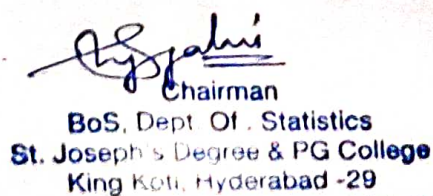 Chairman
BoS, Dept Of . Statistics
St. Joseph's Degree & PG College
King Koti, Hyderabad -29